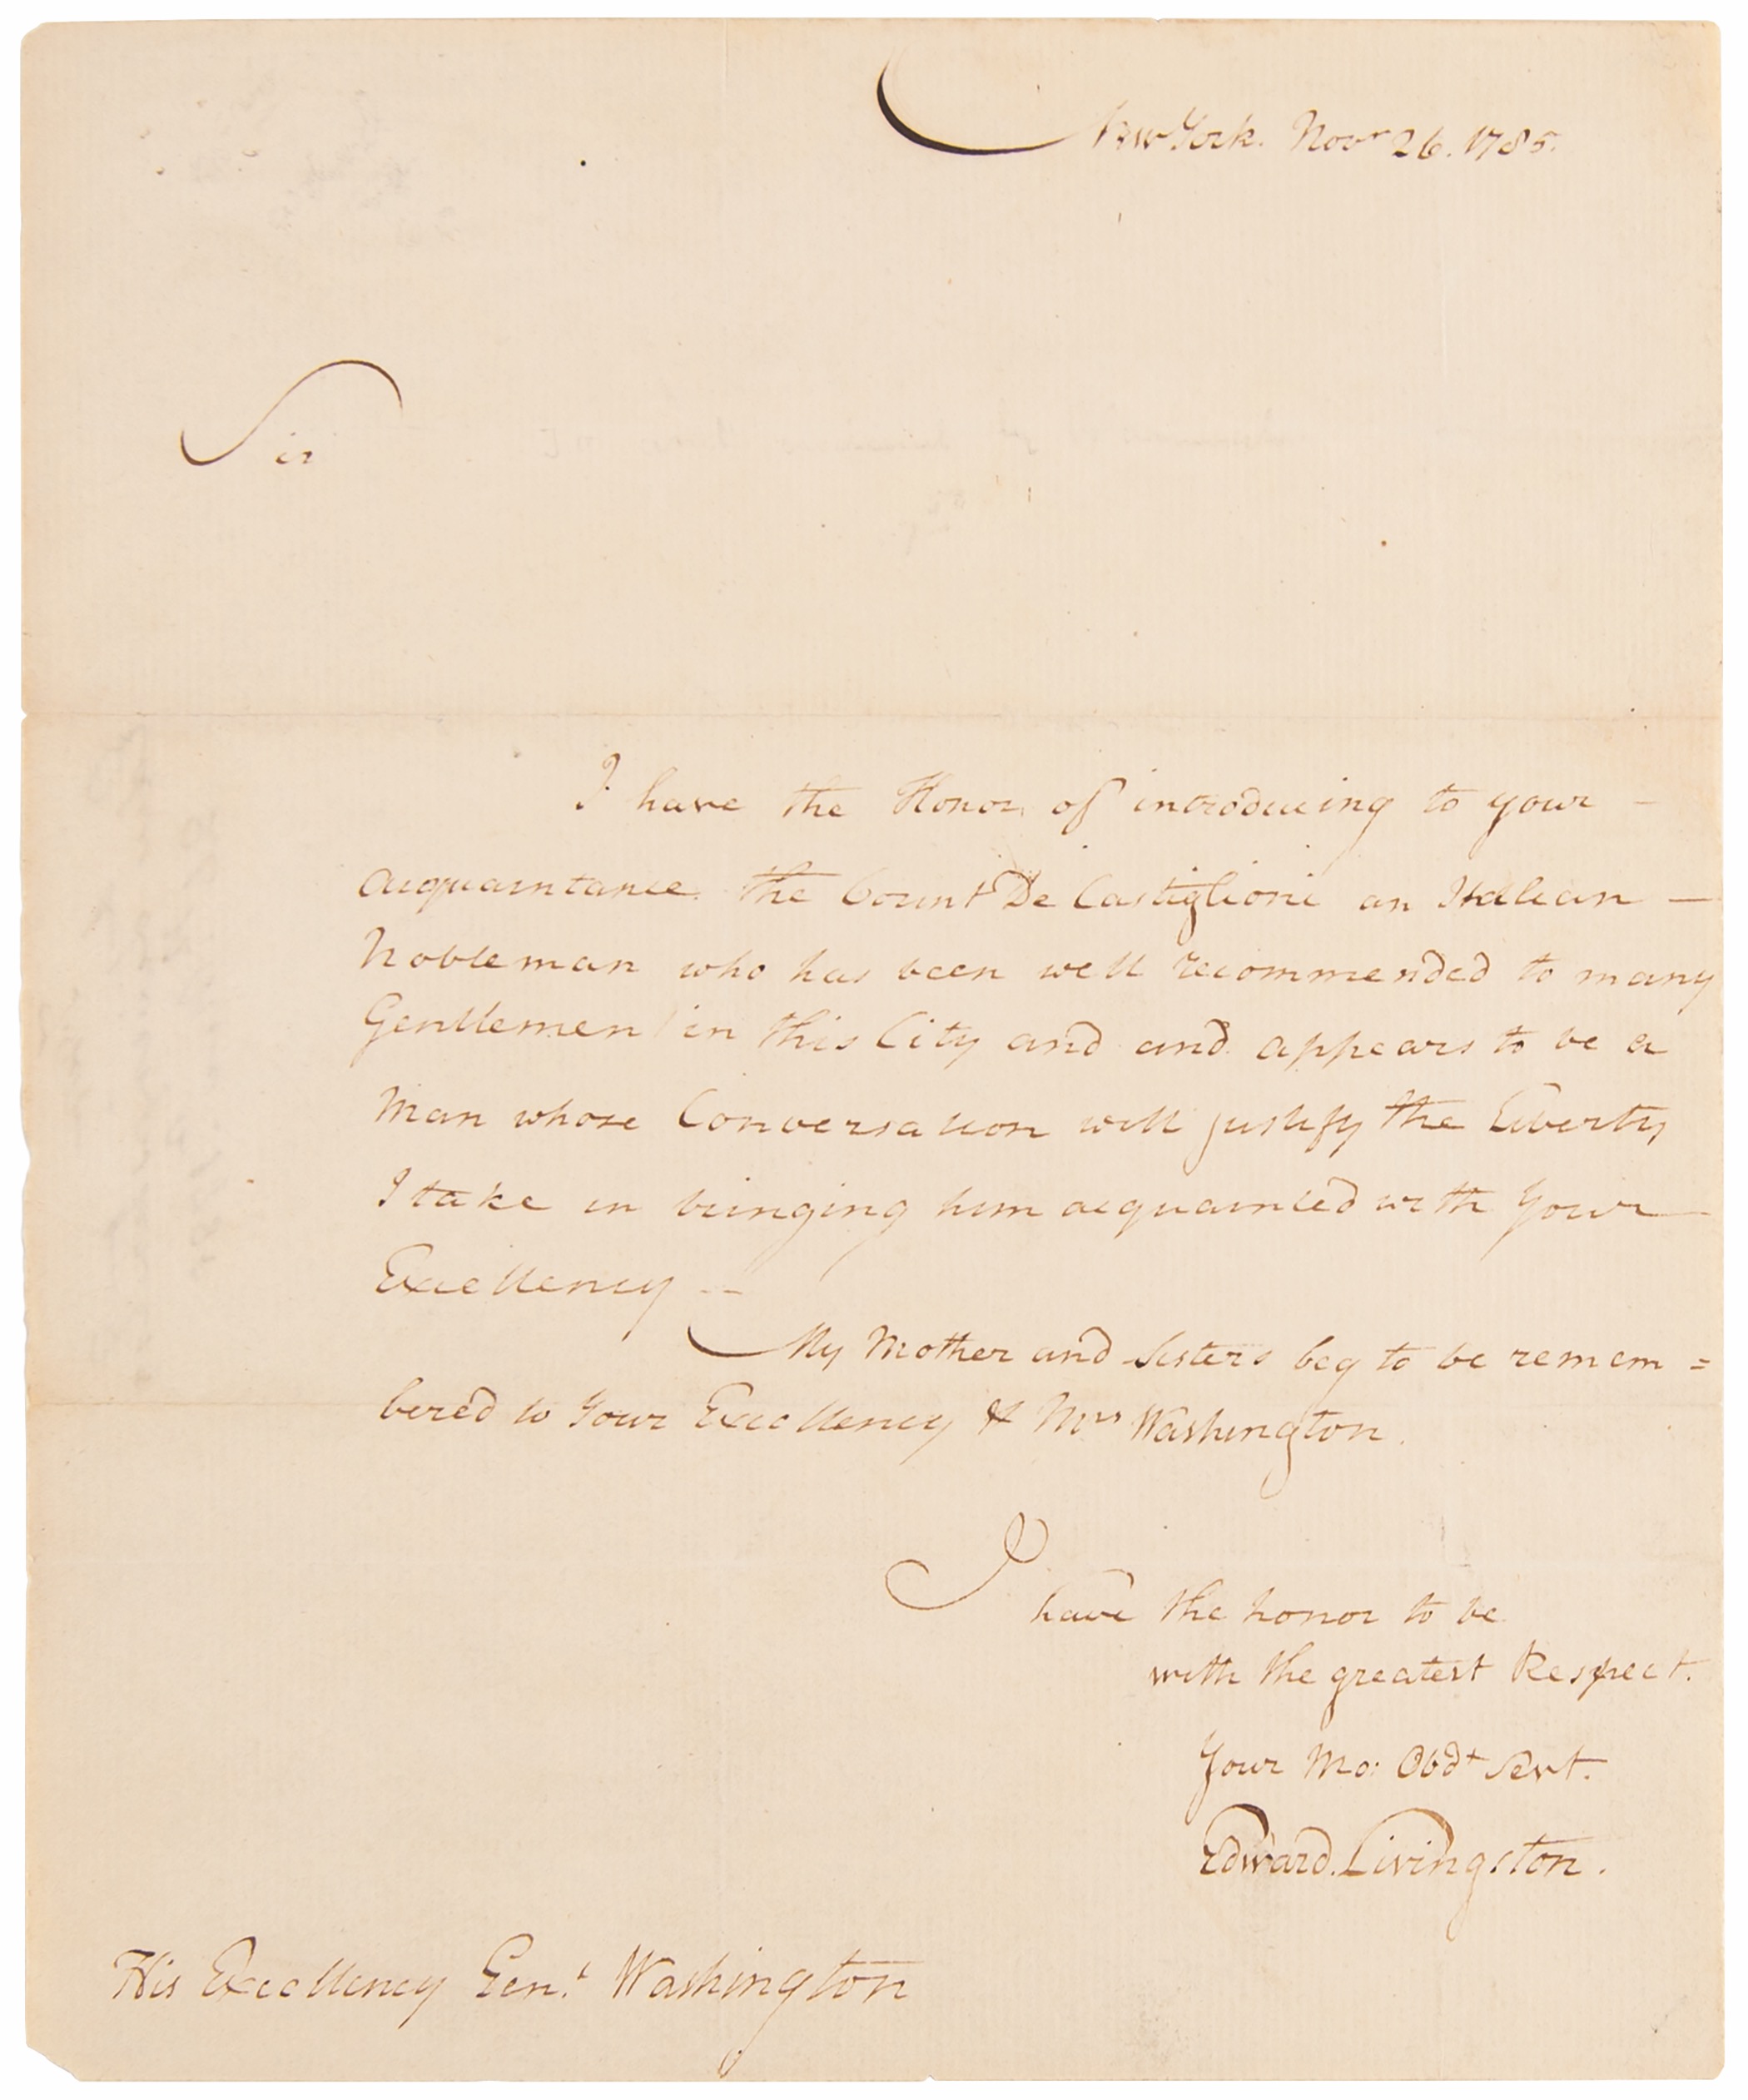 New York. Novr 26. 1785.
Sir
I have the Honor of introducing to your —
acquaintance. the Count De Castiglioni an Italian —
Nobleman who has been well recommended to many
Gentlemen in this City and and appears to be a
Man whose Conversation will justify the Liberty
I take in bringing him acquainted with Your —
Excellency --
My Mother and Sisters beg to be remem =
bered to Your Excellency & Mrs Washington.
I
have the honor to be
with the greatest Respect.
Your Mo: Obdt Servt.
Edward. Livingston.
His Excellency Genl. Washington